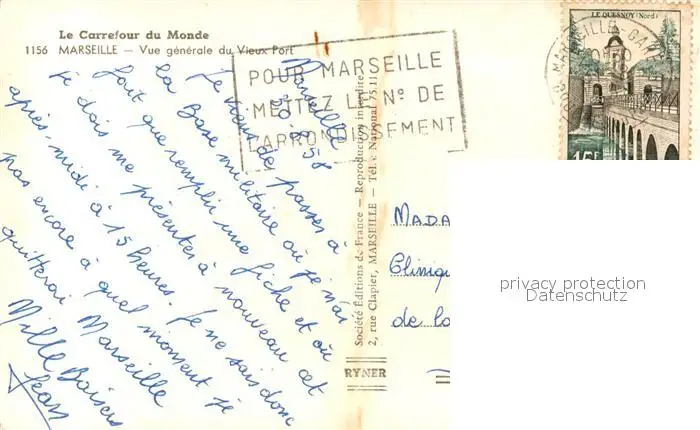 Le Carrefour du Monde
1156 MARSEILLE — Vue générale du Vieux Port
Marseille
58
Je viens de passer à
la Base militaire où je n'ai
fait que remplir une fiche et où
je dois me présenter à nouveau cet
après-midi à 15 heures. Je ne sais donc
pas encore à quel moment je
quitterai Marseille
Mille Baisers
Jean
POUR MARSEILLE
METTEZ LE Nº DE
L'ARRONDISSEMENT
Société Éditions de France — Reproduction interdite
2, rue Clapier, MARSEILLE — Tél. : National 75.11
RYNER
LE QUESNOY (Nord)
MARSEILLE-GARE
15F
MADA
Cliniq
de la
privacy protection
Datenschutz